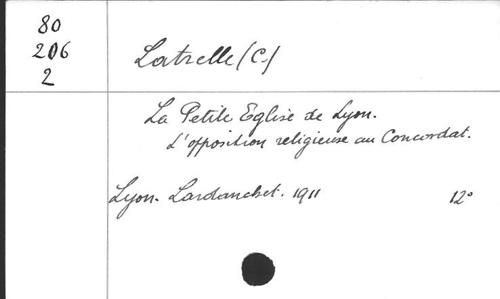 80
206
2
Latreille (C.)
La Petite Eglise de Lyon.
L'opposition religieuse au Concordat.
Lyon. Lardanchet. 1911 12°